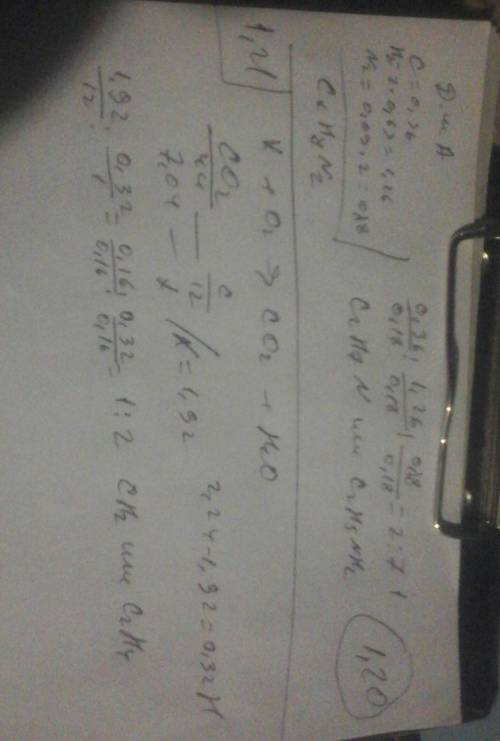 Д-м А
C = 0,36
H = 2 · 0,63 = 1,26
N2 = 0,09 · 2 = 0,18
CxHyNz
0,36/0,18 : 1,26/0,18 : 0,18/0,18 = 2:7:1
C2H7N или C2H5NH2
1,20
1,21
X + O2 → CO2 + H2O
CO2 — C
44 — 12
7,04 — x / X = 1,92
2,24-1,92 = 0,32 H
1,92/12 : 0,32/1 = 0,16/0,16 : 0,32/0,16 = 1:2 CH2 или C2H4